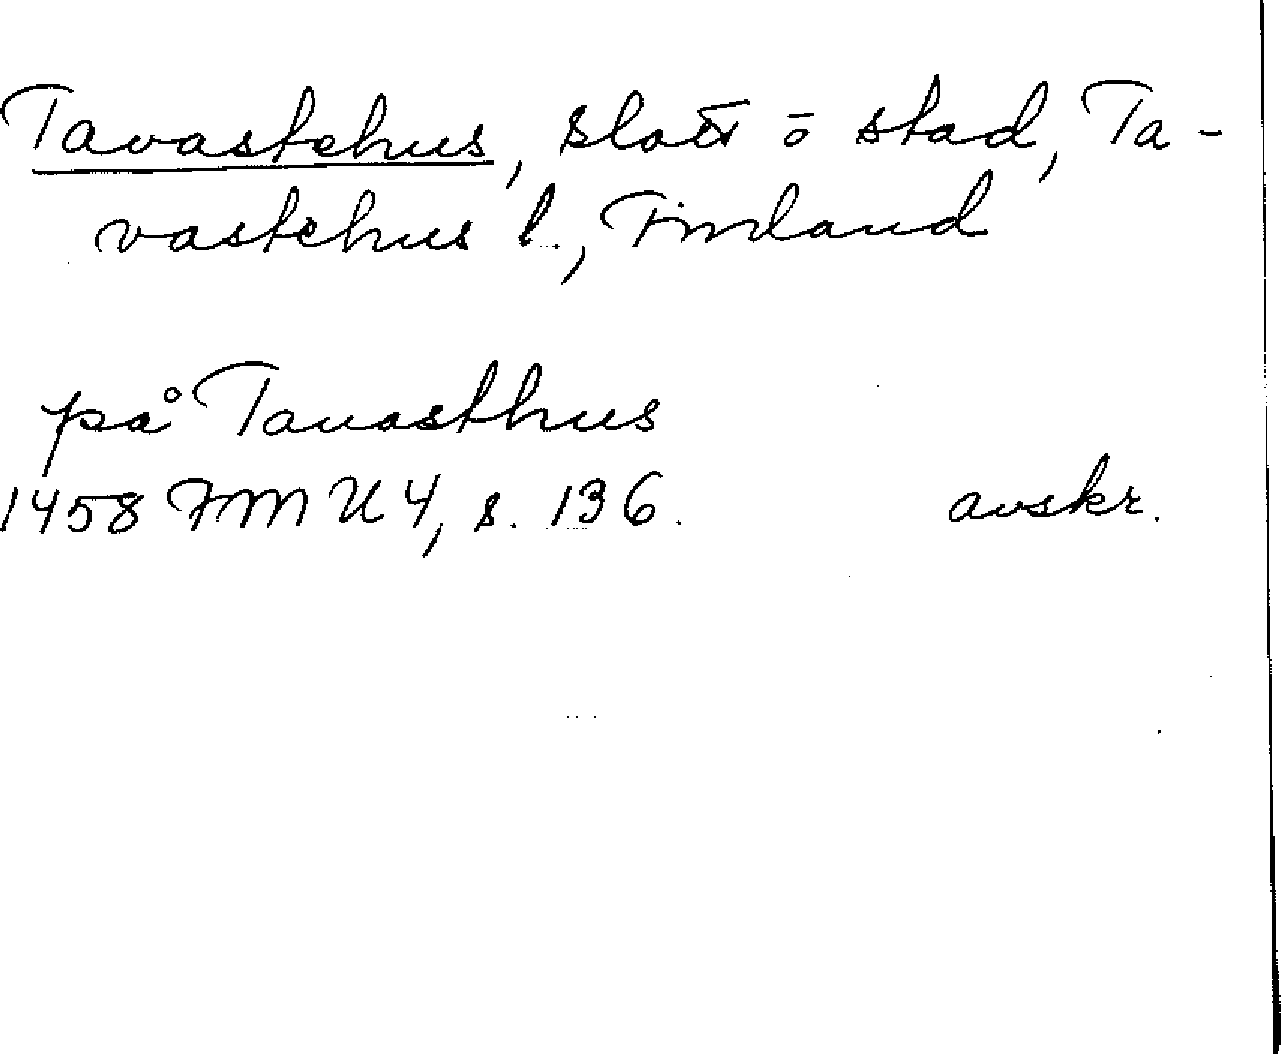 Tavastehus, slott o stad, Ta-
vastehus l., Finland
på Tauasthus
1458 FMU 4, s. 136. avskr.